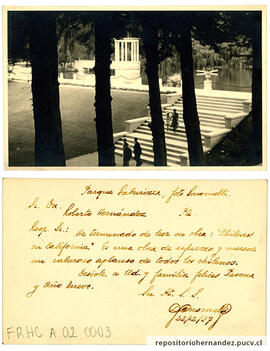 Parque Salurizza, foto Simonetti
Sr. Dn.
Roberto Hernández Pte
Resp. Sr.: He terminado de leer su obra: "Chilenos
en California". Es una obra de esfuerzo y merece
un caluroso aplauso de todos los chilenos.
Deséole a Ud. y familia felices Pascua
y Año nuevo.
Su At. S. S.
22/12/37
FRHC A 02 0003
repositoriohernandez.pucv.cl